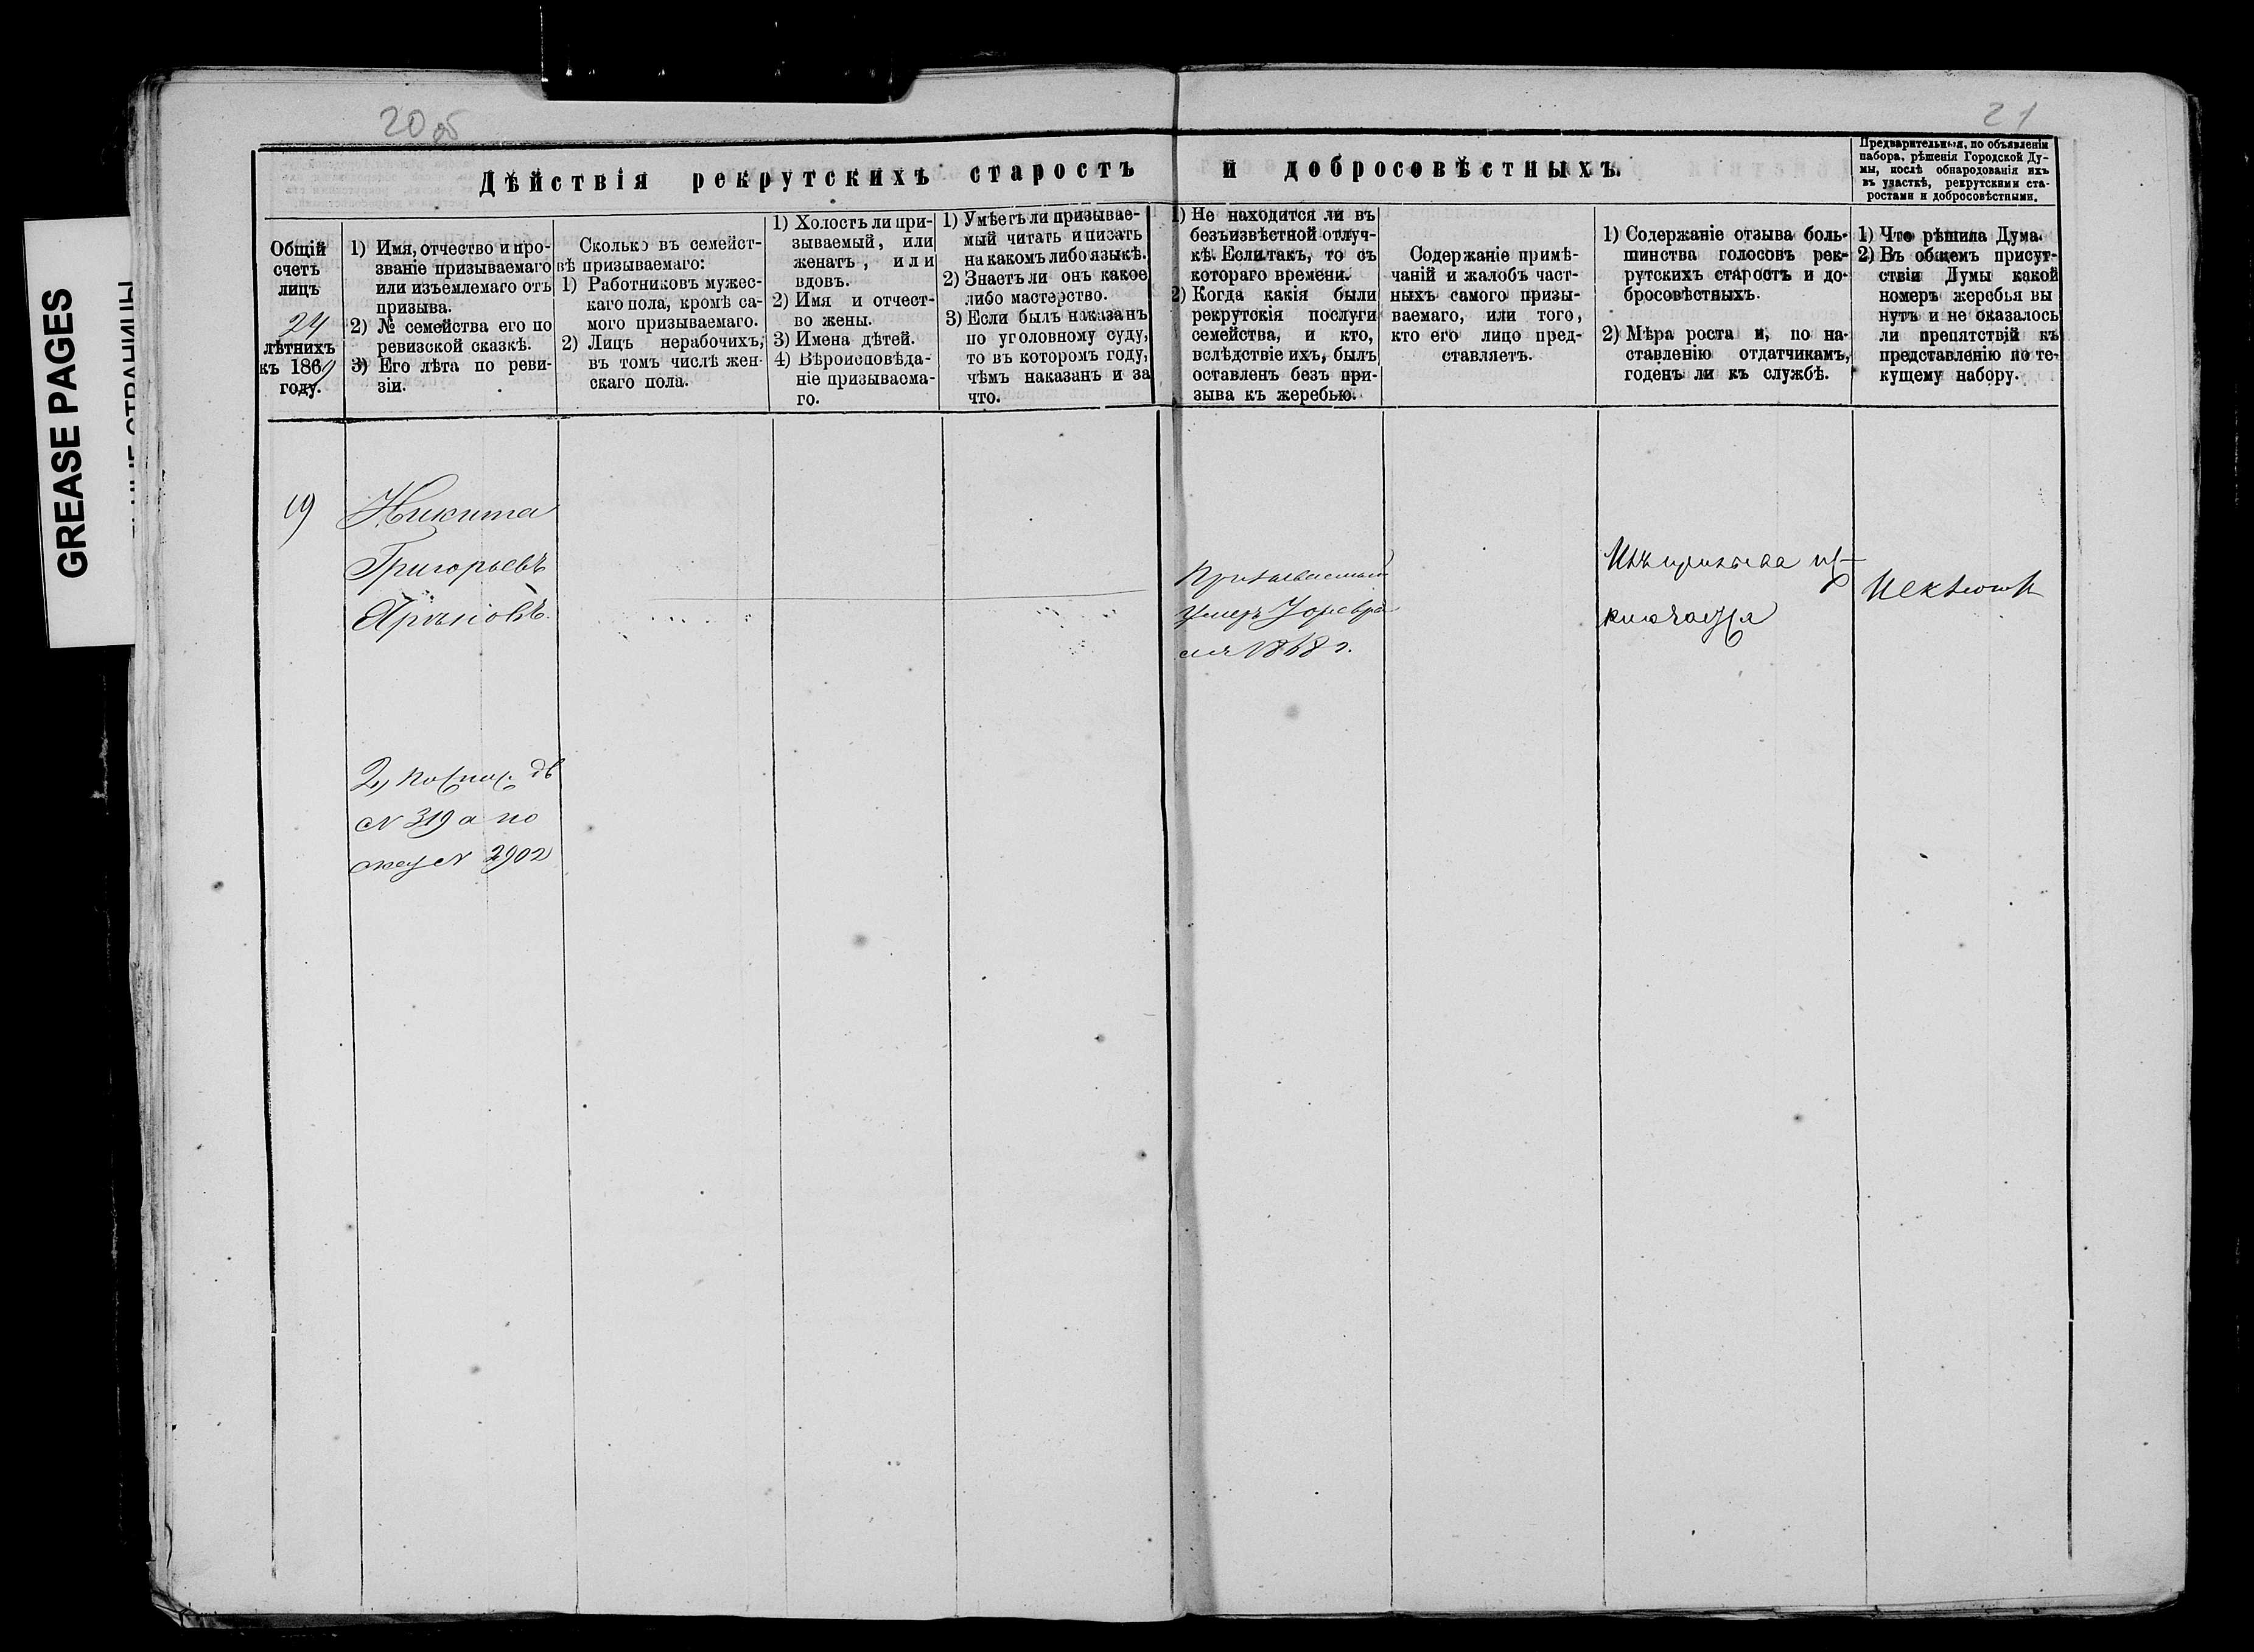 20 об
21
GREASE PAGES
Дѣйствія рекрутскихъ старостъ и добросовѣстныхъ.
Предварительныя, по объявленіи
набора, рѣшенія Городской Ду-
мы, послѣ обнародованія ихъ
въ участкѣ, рекрутскими ста-
ростами и добросовѣстными.
Общій
счетъ
лицъ
24
лѣтнихъ
къ 1869
году.
1) Имя, отчество и про-
званіе призываемаго
или изъемлемаго отъ
призыва.
2) № семейства его по
ревизской сказкѣ.
3) Его лѣта по реви-
зіи.
Сколько въ семейст-
вѣ призываемаго:
1) Работниковъ мужес-
каго пола, кромѣ са-
мого призываемаго.
2) Лицъ нерабочихъ,
въ томъ числѣ жен-
скаго пола.
1) Холостъ ли при-
зываемый, или
женатъ, или
вдовъ.
2) Имя и отчест-
во жены.
3) Имена дѣтей.
4) Вѣроисповѣда-
ніе призываема-
го.
1) Умѣетъ ли призывае-
мый читать и писать
на какомъ либо языкѣ.
2) Знаетъ ли онъ какое
либо мастерство.
3) Если былъ наказанъ
по уголовному суду,
то въ которомъ году,
чѣмъ наказанъ и за
что.
1) Не находится ли въ
безъизвѣстной отлуч-
кѣ. Если такъ, то съ
котораго времени.
2) Когда какія были
рекрутскія послуги
семейства, и кто,
вслѣдствіе ихъ, былъ
оставленъ безъ при-
зыва къ жеребью.
Содержаніе примѣ-
чаній и жалобъ част-
ныхъ самого призы-
ваемаго, или того,
кто его лицо пред-
ставляетъ.
1) Содержаніе отзыва боль-
шинства голосовъ рек-
рутскихъ старостъ и до-
бросовѣстныхъ.
2) Мѣра роста и, по на-
ставленію отдатчикамъ,
годенъ ли къ службѣ.
1) Что рѣшила Дума.
2) Въ общемъ присут-
ствіи Думы какой
номеръ жеребья вы
нутъ и не оказалось
ли препятствій къ
представленію по те-
кущему набору.
19
Никита
Григорьевъ
2, по
№ 319 а по
№ 2902
Призываемый
умеръ 7 февра
ля 1868 г.
Изъ призыва ис-
ключается